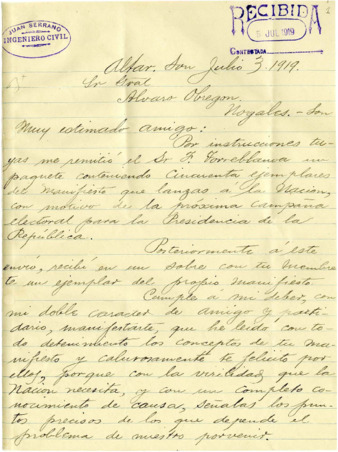 JUAN SERRANO
INGENIERO CIVIL
RECIBIDA
5 JUL 1919
CONTESTADA
Altar, Son Julio 3, 1919.
Sr Gral
Alvaro Obregon.
Nogales. - Son
Muy estimado amigo:
Por instrucciones tu-
yas me remitió el Sr F. Torreblanca un
paquete conteniendo Cincuenta ejemplares
del Manifiesto que lanzas a la Nacion,
con motivo de la próxima Campaña
electoral para la Presidencia de la
República.
Posteriormente á este
envio, recibí en un sobre con tu membre-
te un ejemplar del propio Manifiesto
Cumple a mi deber, con
mi doble caracter de amigo y parti-
dario, manifestarte, que he leido con to-
do detenimiento los conceptos de tu ma-
nifiesto y calurosamente te felicito por
ellos, porque con la virilidad, que la
Nacion necesita, y con un completo co-
nocimiento de causa, señalas los pun-
tos precisos de los que depende el
problema de nuestro porvenir.